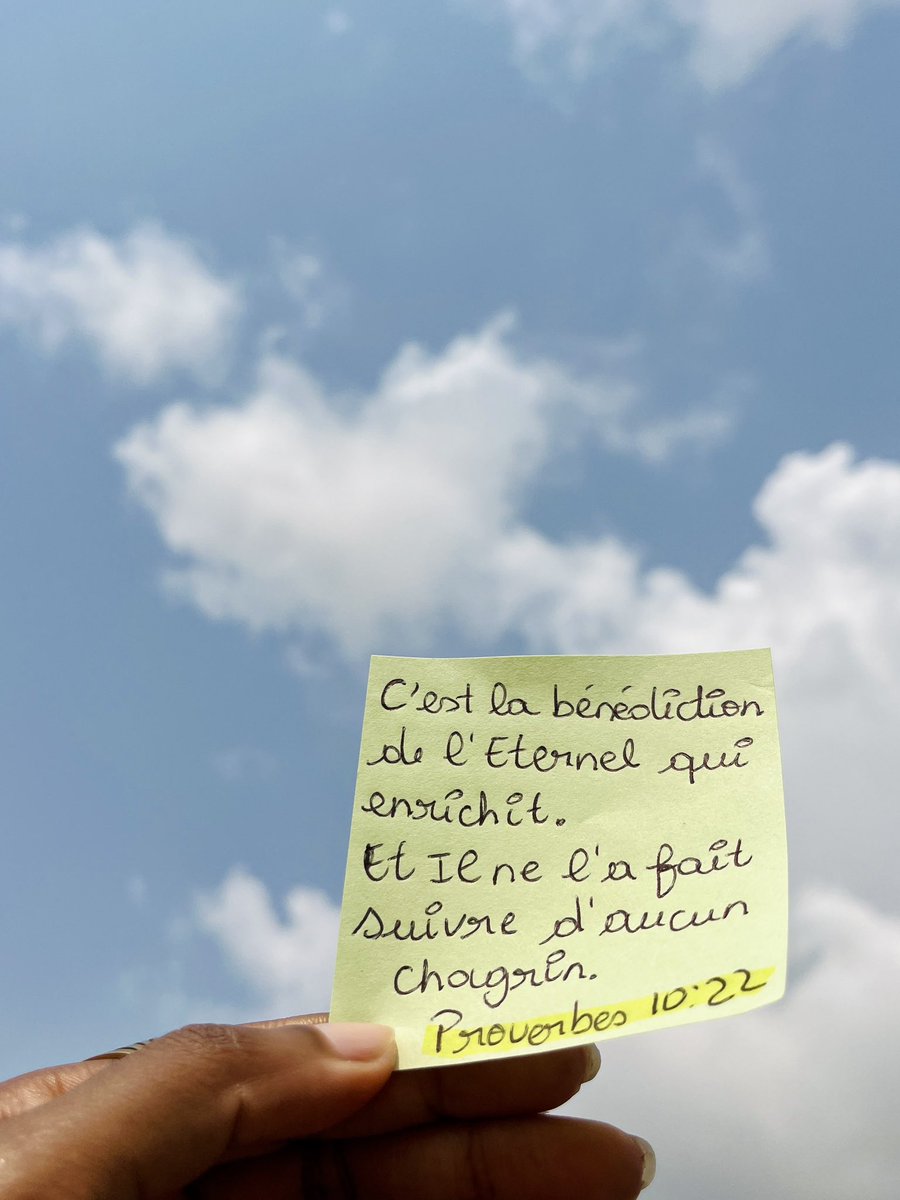 C'est la bénédiction
de l'Eternel qui
enrichit.
Et Il ne l'a fait
suivre d'aucun
chagrin.
Proverbes 10:22